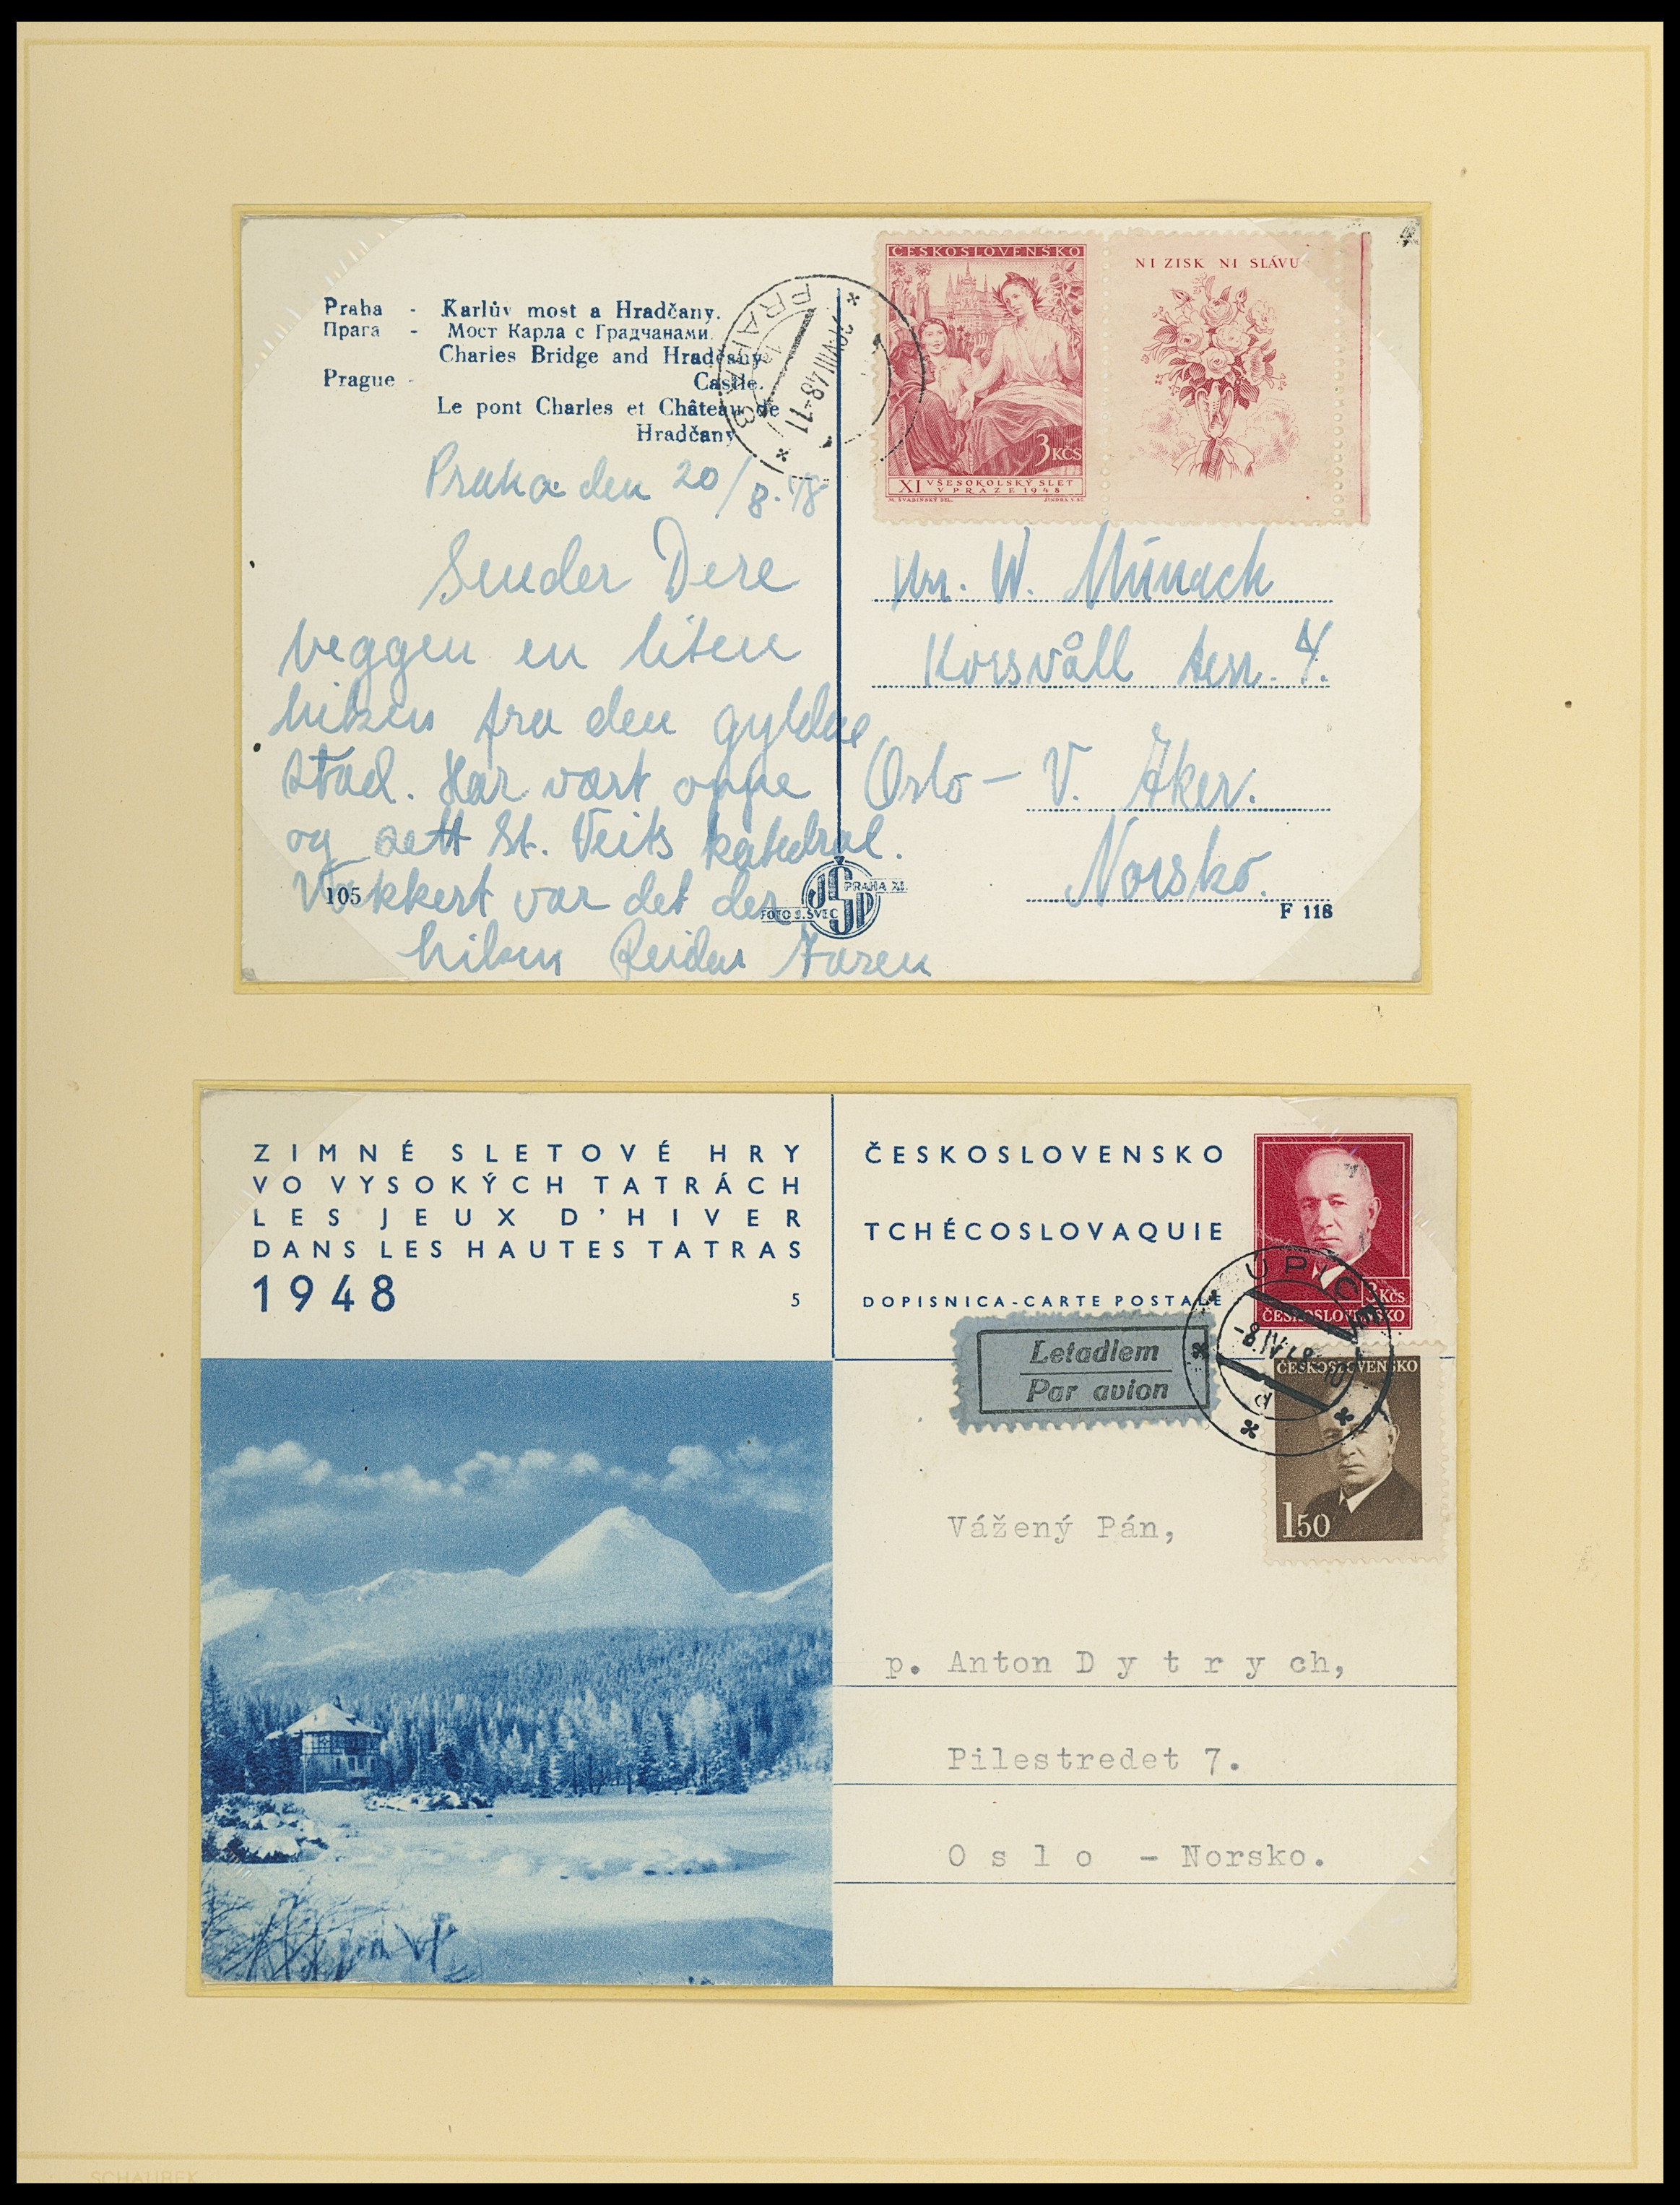 Praha - Karlův most a Hradčany.
Прага - Мост Карла с Градчанами.
Charles Bridge and Hradčany
Prague - Castle.
Le pont Charles et Château de
Hradčany
PRAHA
VIII 48-11
ČESKOSLOVENSKO
3 KČS
XI VŠESOKOLSKÝ SLET
V PRAZE 1948
M. ŠVABINSKÝ DEL.
NI ZISK NI SLÁVU
Praha den 20/8.48
Sender Dere
veggen en liten
hilsen fra den gyldne
stad. Har vært oppe
og sett St. Veits katedral.
Vakkert var det der
hilsen Reidar
W. Münach
Korsvåll terr. 4.
Oslo - V. Aker.
Norsko.
105
JŠP
PRAHA XI.
FOTO J. ŠVEC
F 118
ZIMNÉ SLETOVÉ HRY
VO VYSOKÝCH TATRÁCH
LES JEUX D'HIVER
DANS LES HAUTES TATRAS
1948
5
ČESKOSLOVENSKO
TCHÉCOSLOVAQUIE
DOPISNICA-CARTE POSTALE
3 Kčs
ČESKOSLOVENSKO
ÚPICE
-8.IV.48-10
a
Letadlem
Par avion
ČESKOSLOVENSKO
1 50
Vážený Pán,
p. Anton D y t r y ch,
Pilestredet 7.
O s l o - Norsko.
SCHAUBEK